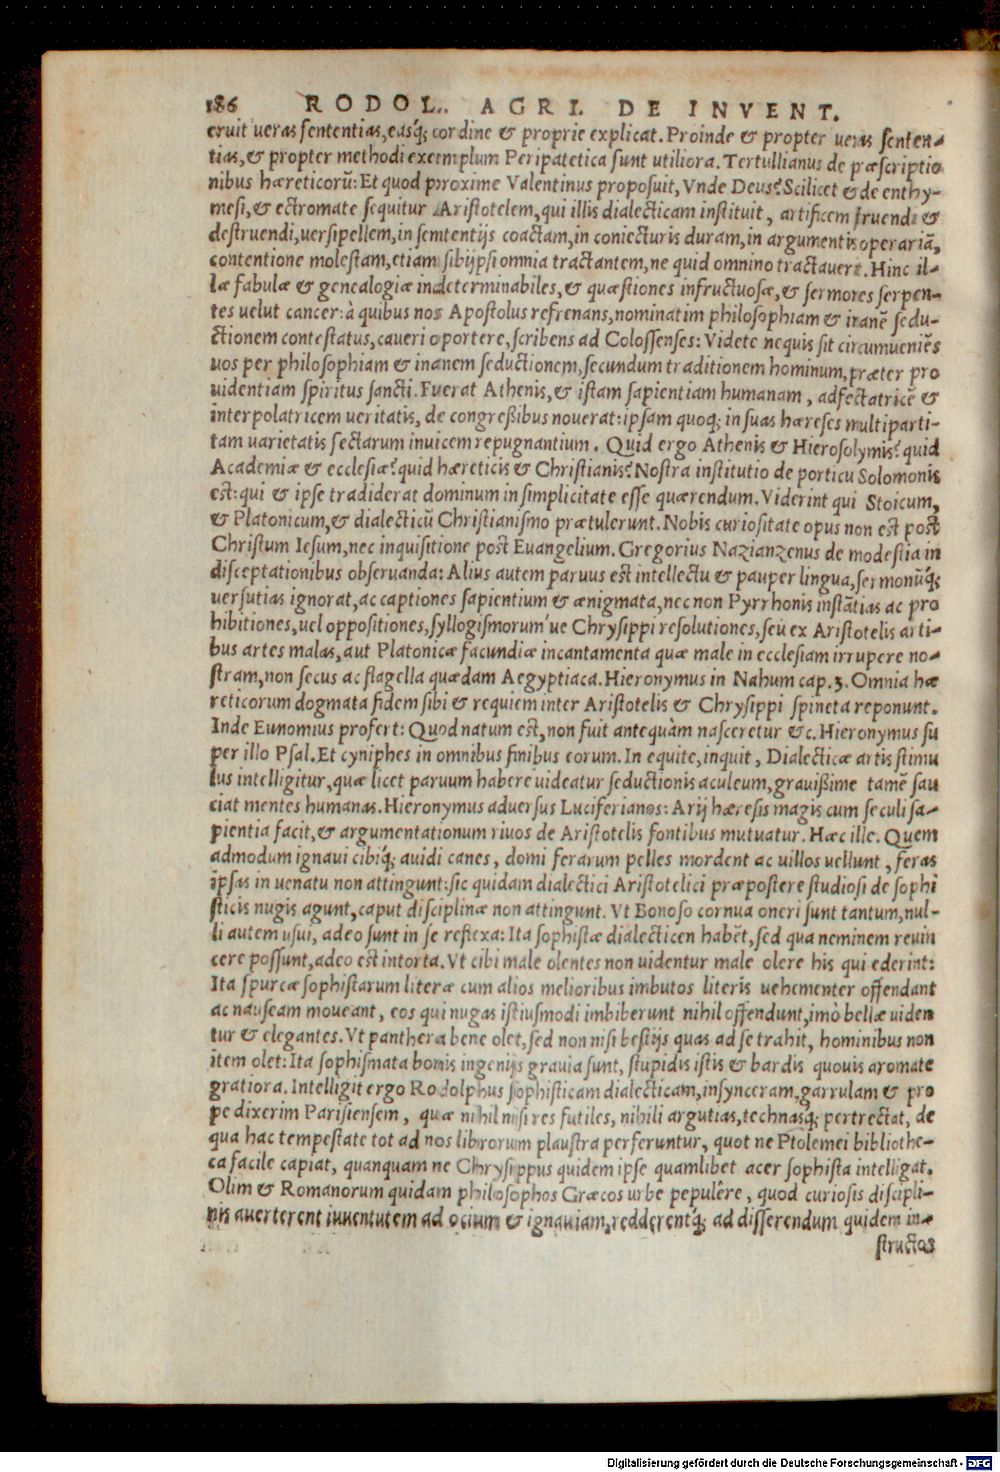 186 RODOL. AGRI. DE INVENT.
eruit ueras sententias, easq́; ordine & proprie explicat. Proinde & propter ueras senten-
tias, & propter methodi exemplum Peripatetica sunt utiliora. Tertullianus de præscriptio
nibus hæreticorū: Et quod proxime Valentinus proposuit, Vnde Deus? Scilicet & de enthy-
mesi, & ectromate sequitur Aristotelem, qui illis dialecticam instituit, artificem struendi &
destruendi, uersipellem, in sententijs coactam, in coniecturis duram, in argumentis operariā,
contentione molestam, etiam sibijpsi omnia tractantem, ne quid omnino tractauerit. Hinc il-
læ fabulæ & genealogiæ indeterminabiles, & quæstiones infructuosæ, & sermones serpen-
tes uelut cancer: à quibus nos Apostolus refrenans, nominatim philosophiam & inanē sedu-
ctionem contestatus, caueri oportere, scribens ad Colossenses: Videte nequis sit circumueniēs
uos per philosophiam & inanem seductionem, secundum traditionem hominum, præter pro
uidentiam spiritus sancti. Fuerat Athenis, & istam sapientiam humanam, adfectatricē &
interpolatricem ueritatis, de congreßibus nouerat: ipsam quoq; in suas hæreses multiparti-
tam uarietatis sectarum inuicem repugnantium. Quid ergo Athenis & Hierosolymis? quid
Academiæ & ecclesiæ? quid hæreticis & Christianis? Nostra institutio de porticu Solomonis
est: qui & ipse tradiderat dominum in simplicitate esse quærendum. Viderint qui Stoicum,
& Platonicum, & dialecticū Christianismo prætulerunt. Nobis curiositate opus non est post
Christum Iesum, nec inquisitione post Euangelium. Gregorius Nazianzenus de modestia in
disceptationibus obseruanda: Alius autem paruus est intellectu & pauper lingua, sermonūq́;
uersutias ignorat, ac captiones sapientium & ænigmata, nec non Pyrrhonis instātias ac pro
hibitiones, uel oppositiones, syllogismorum'ue Chrysippi resolutiones, seu ex Aristotelis arti-
bus artes malas, aut Platonicæ facundiæ incantamenta quæ male in ecclesiam irrupere no-
stram, non secus ac flagella quædam Aegyptiaca. Hieronymus in Nahum cap. 3. Omnia hæ
reticorum dogmata fidem sibi & requiem inter Aristotelis & Chrysippi spineta reponunt.
Inde Eunomius profert: Quod natum est, non fuit antequàm nasceretur &c. Hieronymus su
per illo Psal. Et cyniphes in omnibus finibus eorum. In equite, inquit, Dialecticæ artis stimu
lus intelligitur, quæ licet paruum habere uideatur seductionis aculeum, grauißime tamē sau
ciat mentes humanas. Hieronymus aduersus Luciferianos: Arij hæresis magis cum seculi sa-
pientia facit, & argumentationum riuos de Aristotelis fontibus mutuatur. Hæc ille. Quem
admodum ignaui cibiq́; auidi canes, domi ferarum pelles mordent ac uillos uellunt, feras
ipsas in uenatu non attingunt: sic quidam dialectici Aristotelici præpostere studiosi de sophi
sticis nugis agunt, caput disciplinæ non attingunt. Vt Bonoso cornua oneri sunt tantum, nul-
li autem usui, adeo sunt in se reflexa: Ita sophistæ dialecticen habēt, sed qua neminem reuin
cere possunt, adeo est intorta. Vt cibi male olentes non uidentur male olere his qui ederint:
Ita spurcæ sophistarum literæ cum alios melioribus imbutos literis uehementer offendant
ac nauseam moueant, eos qui nugas istiusmodi imbiberunt nihil offendunt, imò bellæ uiden
tur & elegantes. Vt panthera bene olet, sed non nisi bestijs quas ad se trahit, hominibus non
item olet: Ita sophismata bonis ingenijs grauia sunt, stupidis istis & bardis quouis aromate
gratiora. Intelligit ergo Rodolphus sophisticam dialecticam, insynceram, garrulam & pro
pe dixerim Parisiensem, quæ nihil nisi res futiles, nihili argutias, technasq́; pertrectat, de
qua hac tempestate tot ad nos librorum plaustra perferuntur, quot ne Ptolemei bibliothe-
ca facile capiat, quanquam ne Chrysippus quidem ipse quamlibet acer sophista intelligat.
Olim & Romanorum quidam philosophos Græcos urbe pepulêre, quod curiosis discipli-
nis auerterent iuuentutem ad ocium & ignauiam, redderentq́; ad disserendum quidem in-
structos
Digitalisierung gefördert durch die Deutsche Forschungsgemeinschaft - DFG